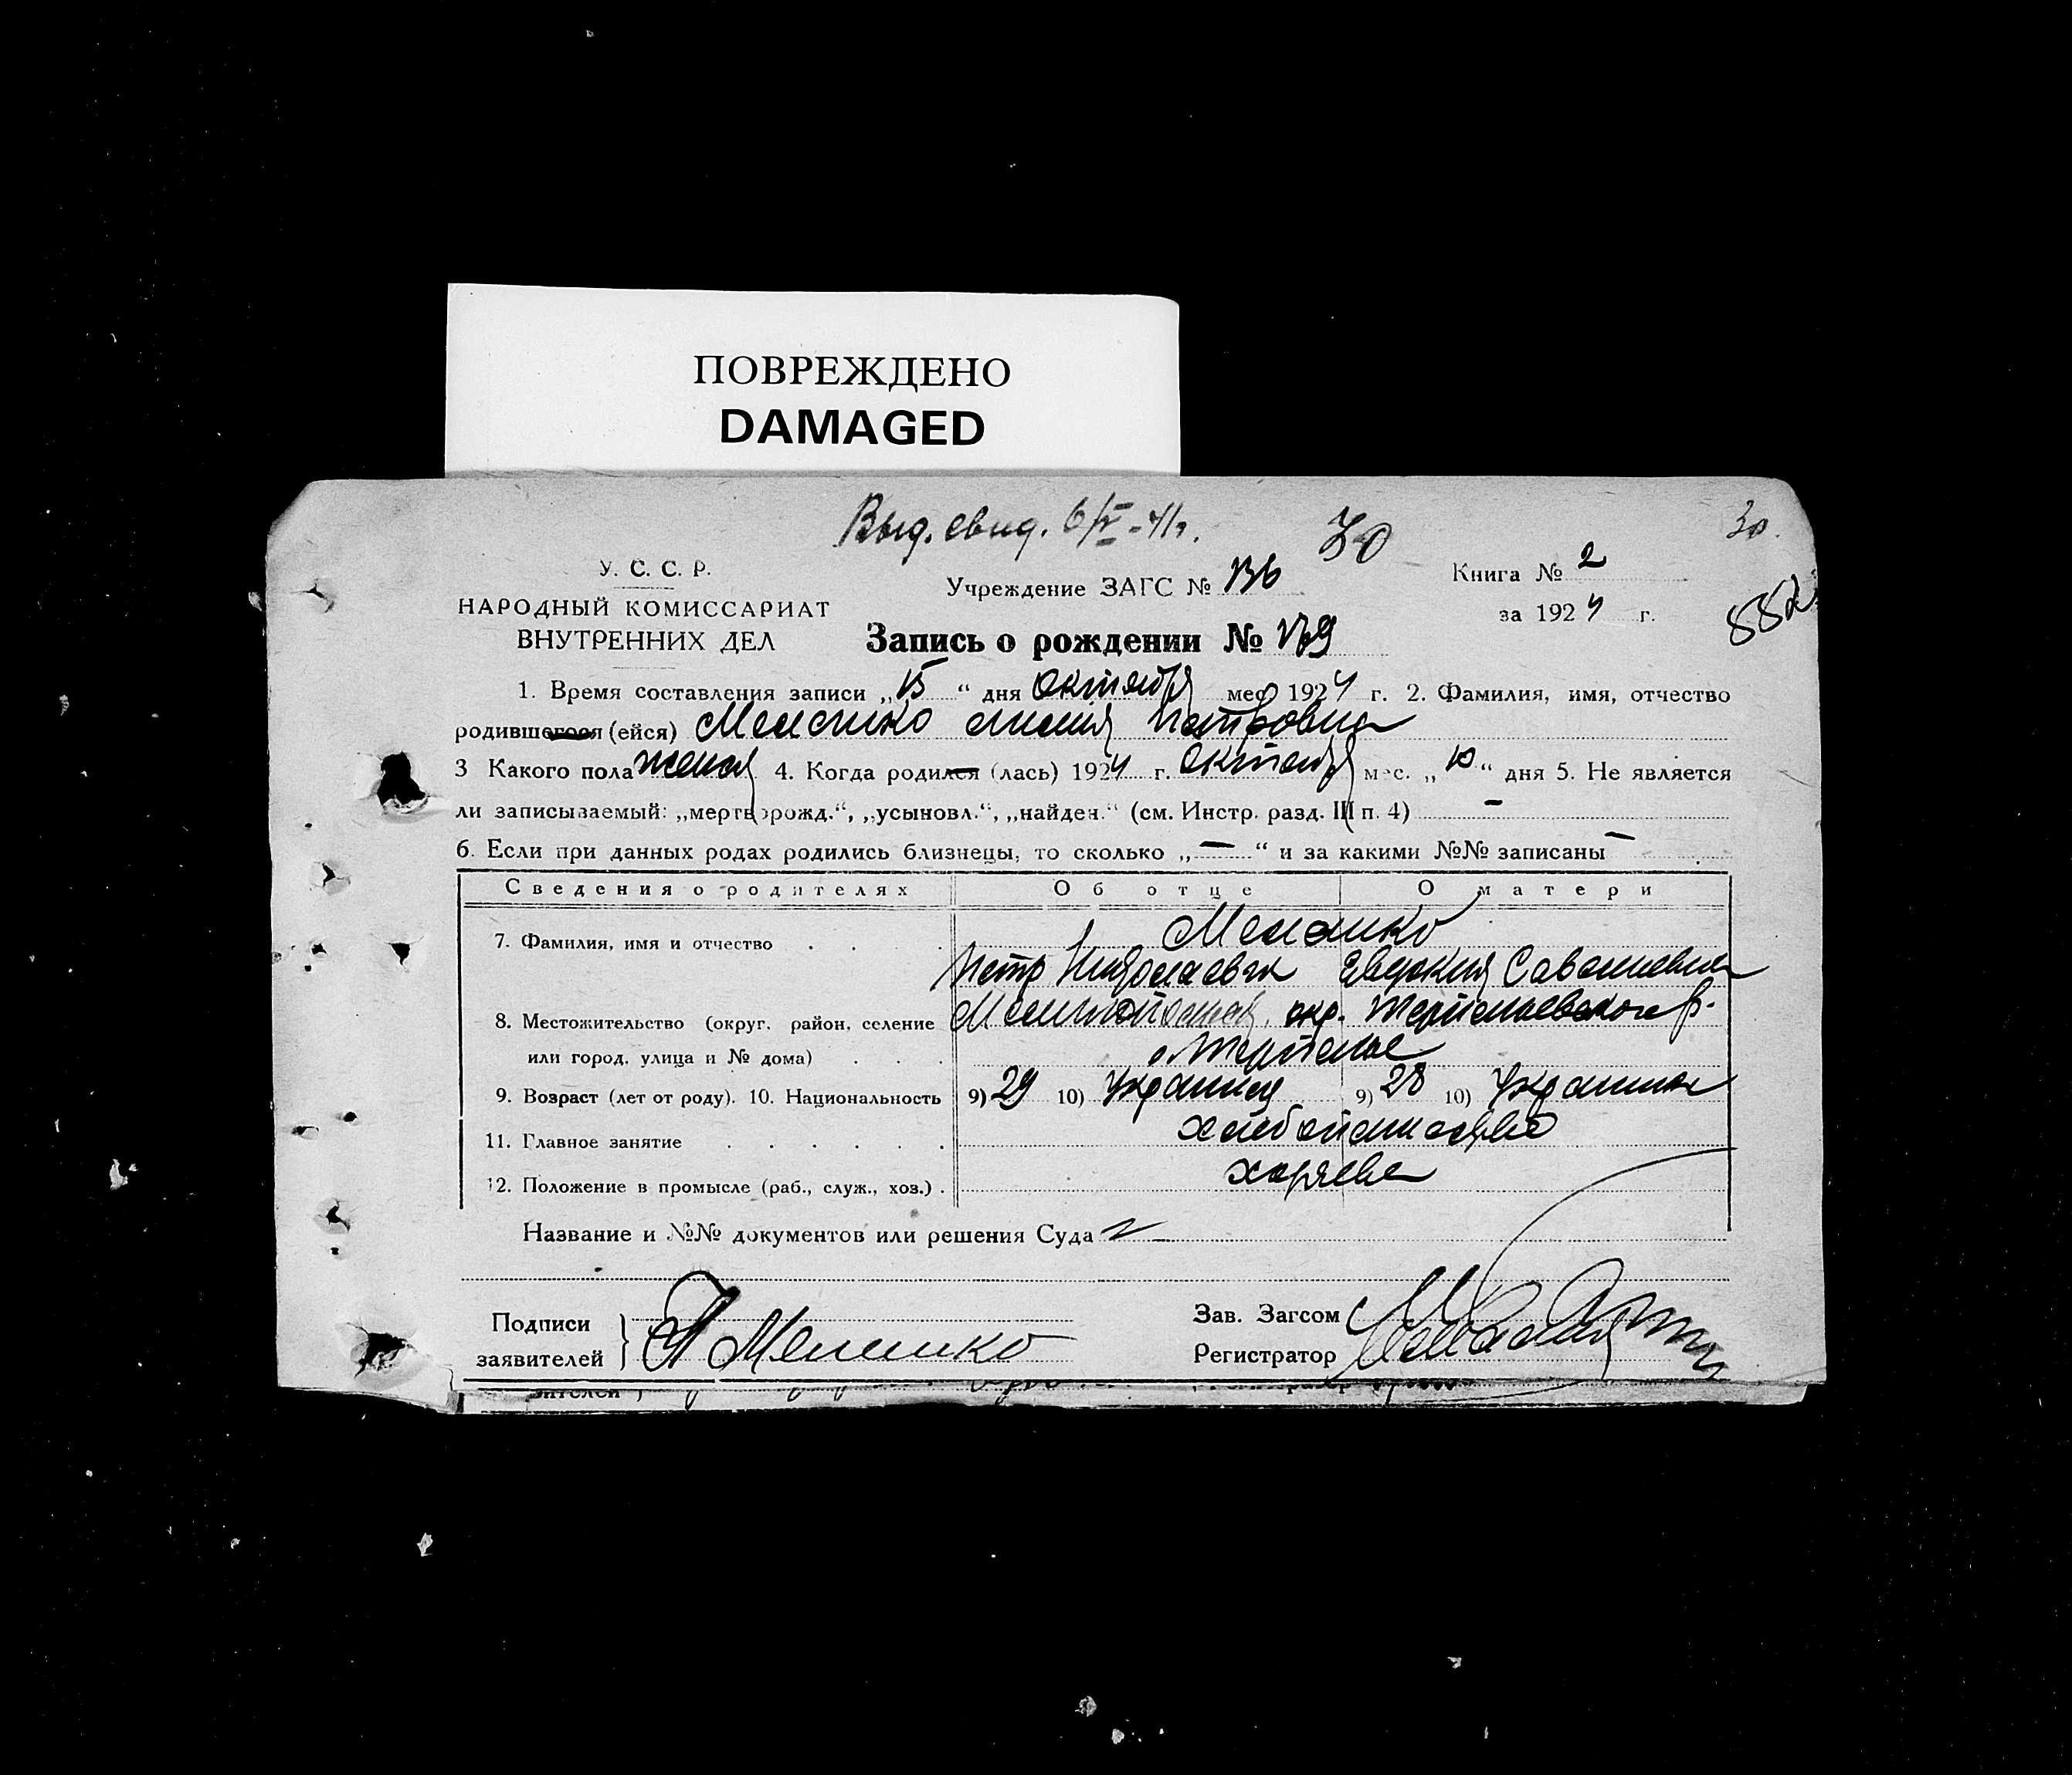 ПОВРЕЖДЕНО
DAMAGED
Выд. свид. 6/V-41г.
30
30.
У. С. С. Р.
Учреждение ЗАГС № 136
Книга № 2
НАРОДНЫЙ КОМИССАРИАТ
за 1924 г.
882
ВНУТРЕННИХ ДЕЛ
Запись о рождении № 179
1. Время составления записи „15“ дня Октября мес 1924 г. 2. Фамилия, имя, отчество
родившегося (ейся) Мелешко Лидия Петровна
3 Какого пола женск 4. Когда родился (лась) 1924 г. Октября мес. „10“ дня 5. Не является
ли записываемый: „мертворожд.“, „усыновл.“, „найден.“ (см. Инстр. разд. III п. 4) —
6. Если при данных родах родились близнецы, то сколько „—“ и за какими №№ записаны —
Сведения о родителях Об отце О матери
7. Фамилия, имя и отчество Мелешко
Петр Николаевич Евдокия Савельевна
8. Местожительство (округ, район, селение Мелитопольск. окр. Терпеньевского р.
или город, улица и № дома) с. Терпенье
9. Возраст (лет от роду). 10. Национальность 9) 29 10) Украинец 9) 28 10) Украинка
11. Главное занятие хлебопашество
12. Положение в промысле (раб., служ., хоз.) хозяева
Название и №№ документов или решения Суда
Подписи
заявителей } П Мелешко
Зав. Загсом
Регистратор